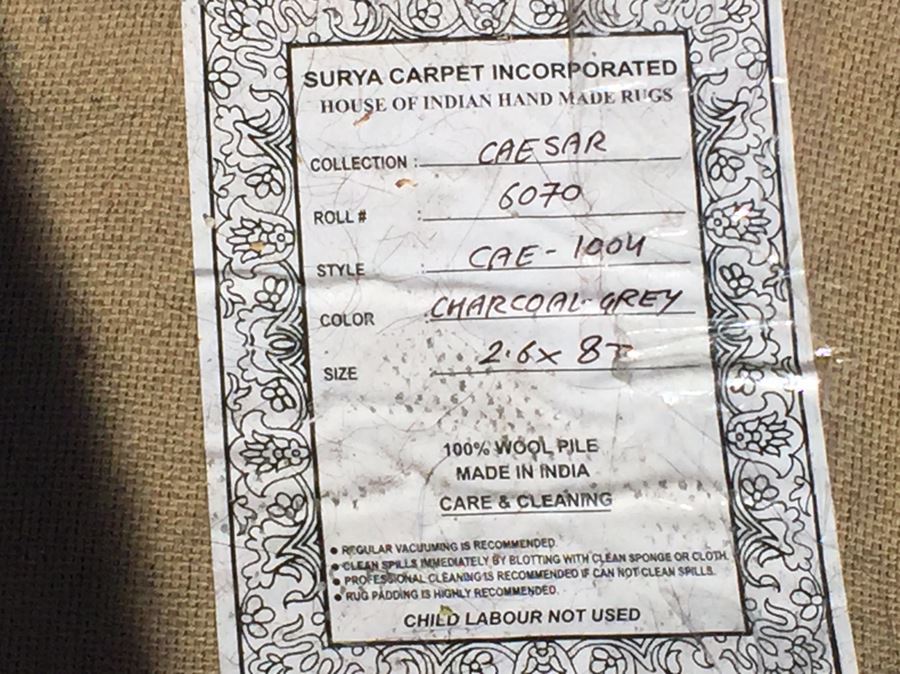 SURYA CARPET INCORPORATED
HOUSE OF INDIAN HAND MADE RUGS
COLLECTION : CAESAR
ROLL # : 6070
STYLE : CAE - 1004
COLOR : CHARCOAL-GREY
SIZE 2.6 x 8
100% WOOL PILE
MADE IN INDIA
CARE & CLEANING
● REGULAR VACUUMING IS RECOMMENDED.
● CLEAN SPILLS IMMEDIATELY BY BLOTTING WITH CLEAN SPONGE OR CLOTH.
● PROFESSIONAL CLEANING IS RECOMMENDED IF CAN NOT CLEAN SPILLS.
● RUG PADDING IS HIGHLY RECOMMENDED.
CHILD LABOUR NOT USED